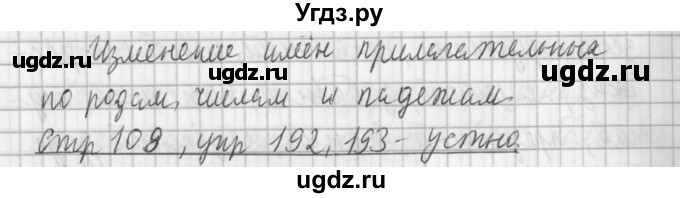 Угдз.ру
Изменение имён прилагательных
ugdz.ru ugdz.ru ugdz.ru
по родам, числам и падежам
стр 108, упр 192, 193 - устно.
ugdz.ru ugdz.ru
ugdz.ru